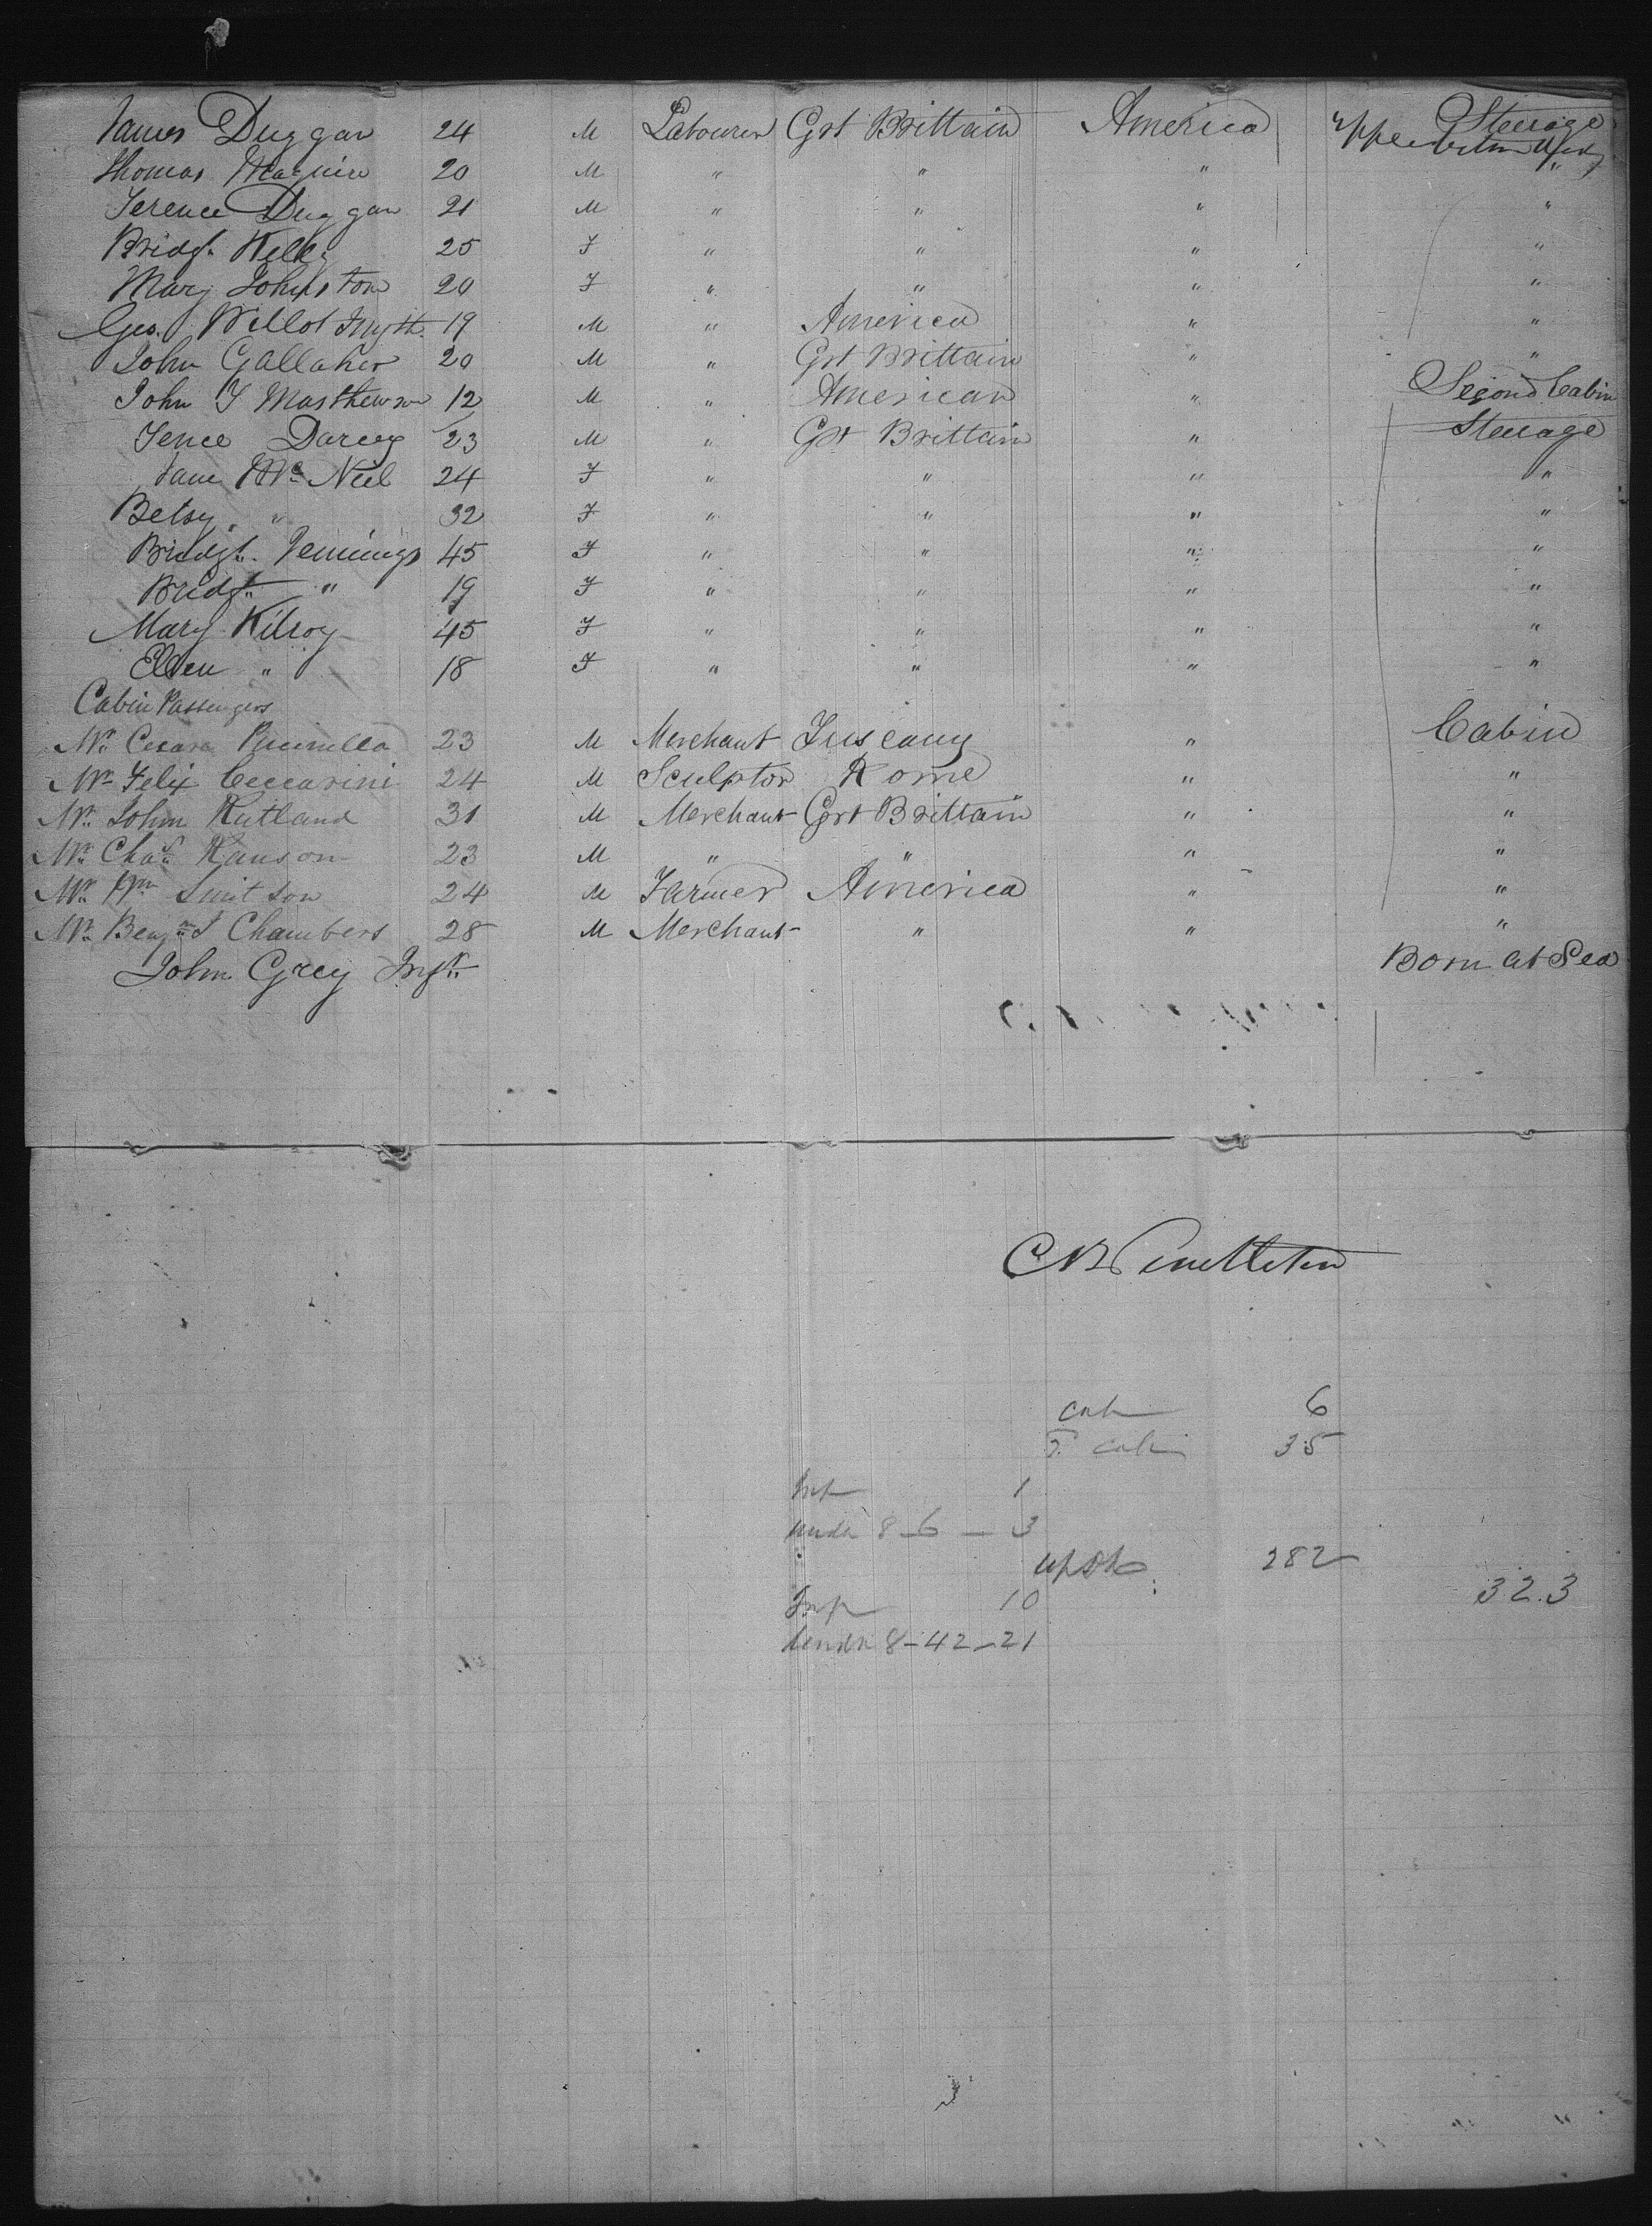 James Duggan 24 M Labourer Grt Brittain America Steerage
Thomas Maguire 20 M " " " "
Terence Duggan 21 M " " " "
Bridgt. Kelly 25 F " " " "
Mary Johnston 20 F " " " "
Geo. 19 M " America " "
John Gallaher 20 M " Grt Brittain " "
John T 12 M " American " Second Cabin
Darcey 23 M " Grt Brittain " Steerage
Jane Mc Neil 24 F " " " "
Betsy " 32 F " " " "
Bridgt. Jennings 45 F " " " "
Bridgt. " 19 F " " " "
Mary Kilroy 45 F " " " "
Ellen " 18 F " " " "
Cabin Passengers
Mr. Cesare 23 M Merchant Tuscany " Cabin
Mr. Felix Ceccarini 24 M Sculptor Rome " "
Mr. John Rutland 31 M Merchant Grt Brittain " "
Mr. Chas. Ranson 23 M " " " "
Mr. Wm Smitson 24 M Farmer America " "
Mr. Benjn. J Chambers 28 M Merchant " " "
John Grey Inft. Born at Sea
6
35
Inf 1
under 8 - 6 - 3
282
323
Inf 10
under 8 - 42 - 21